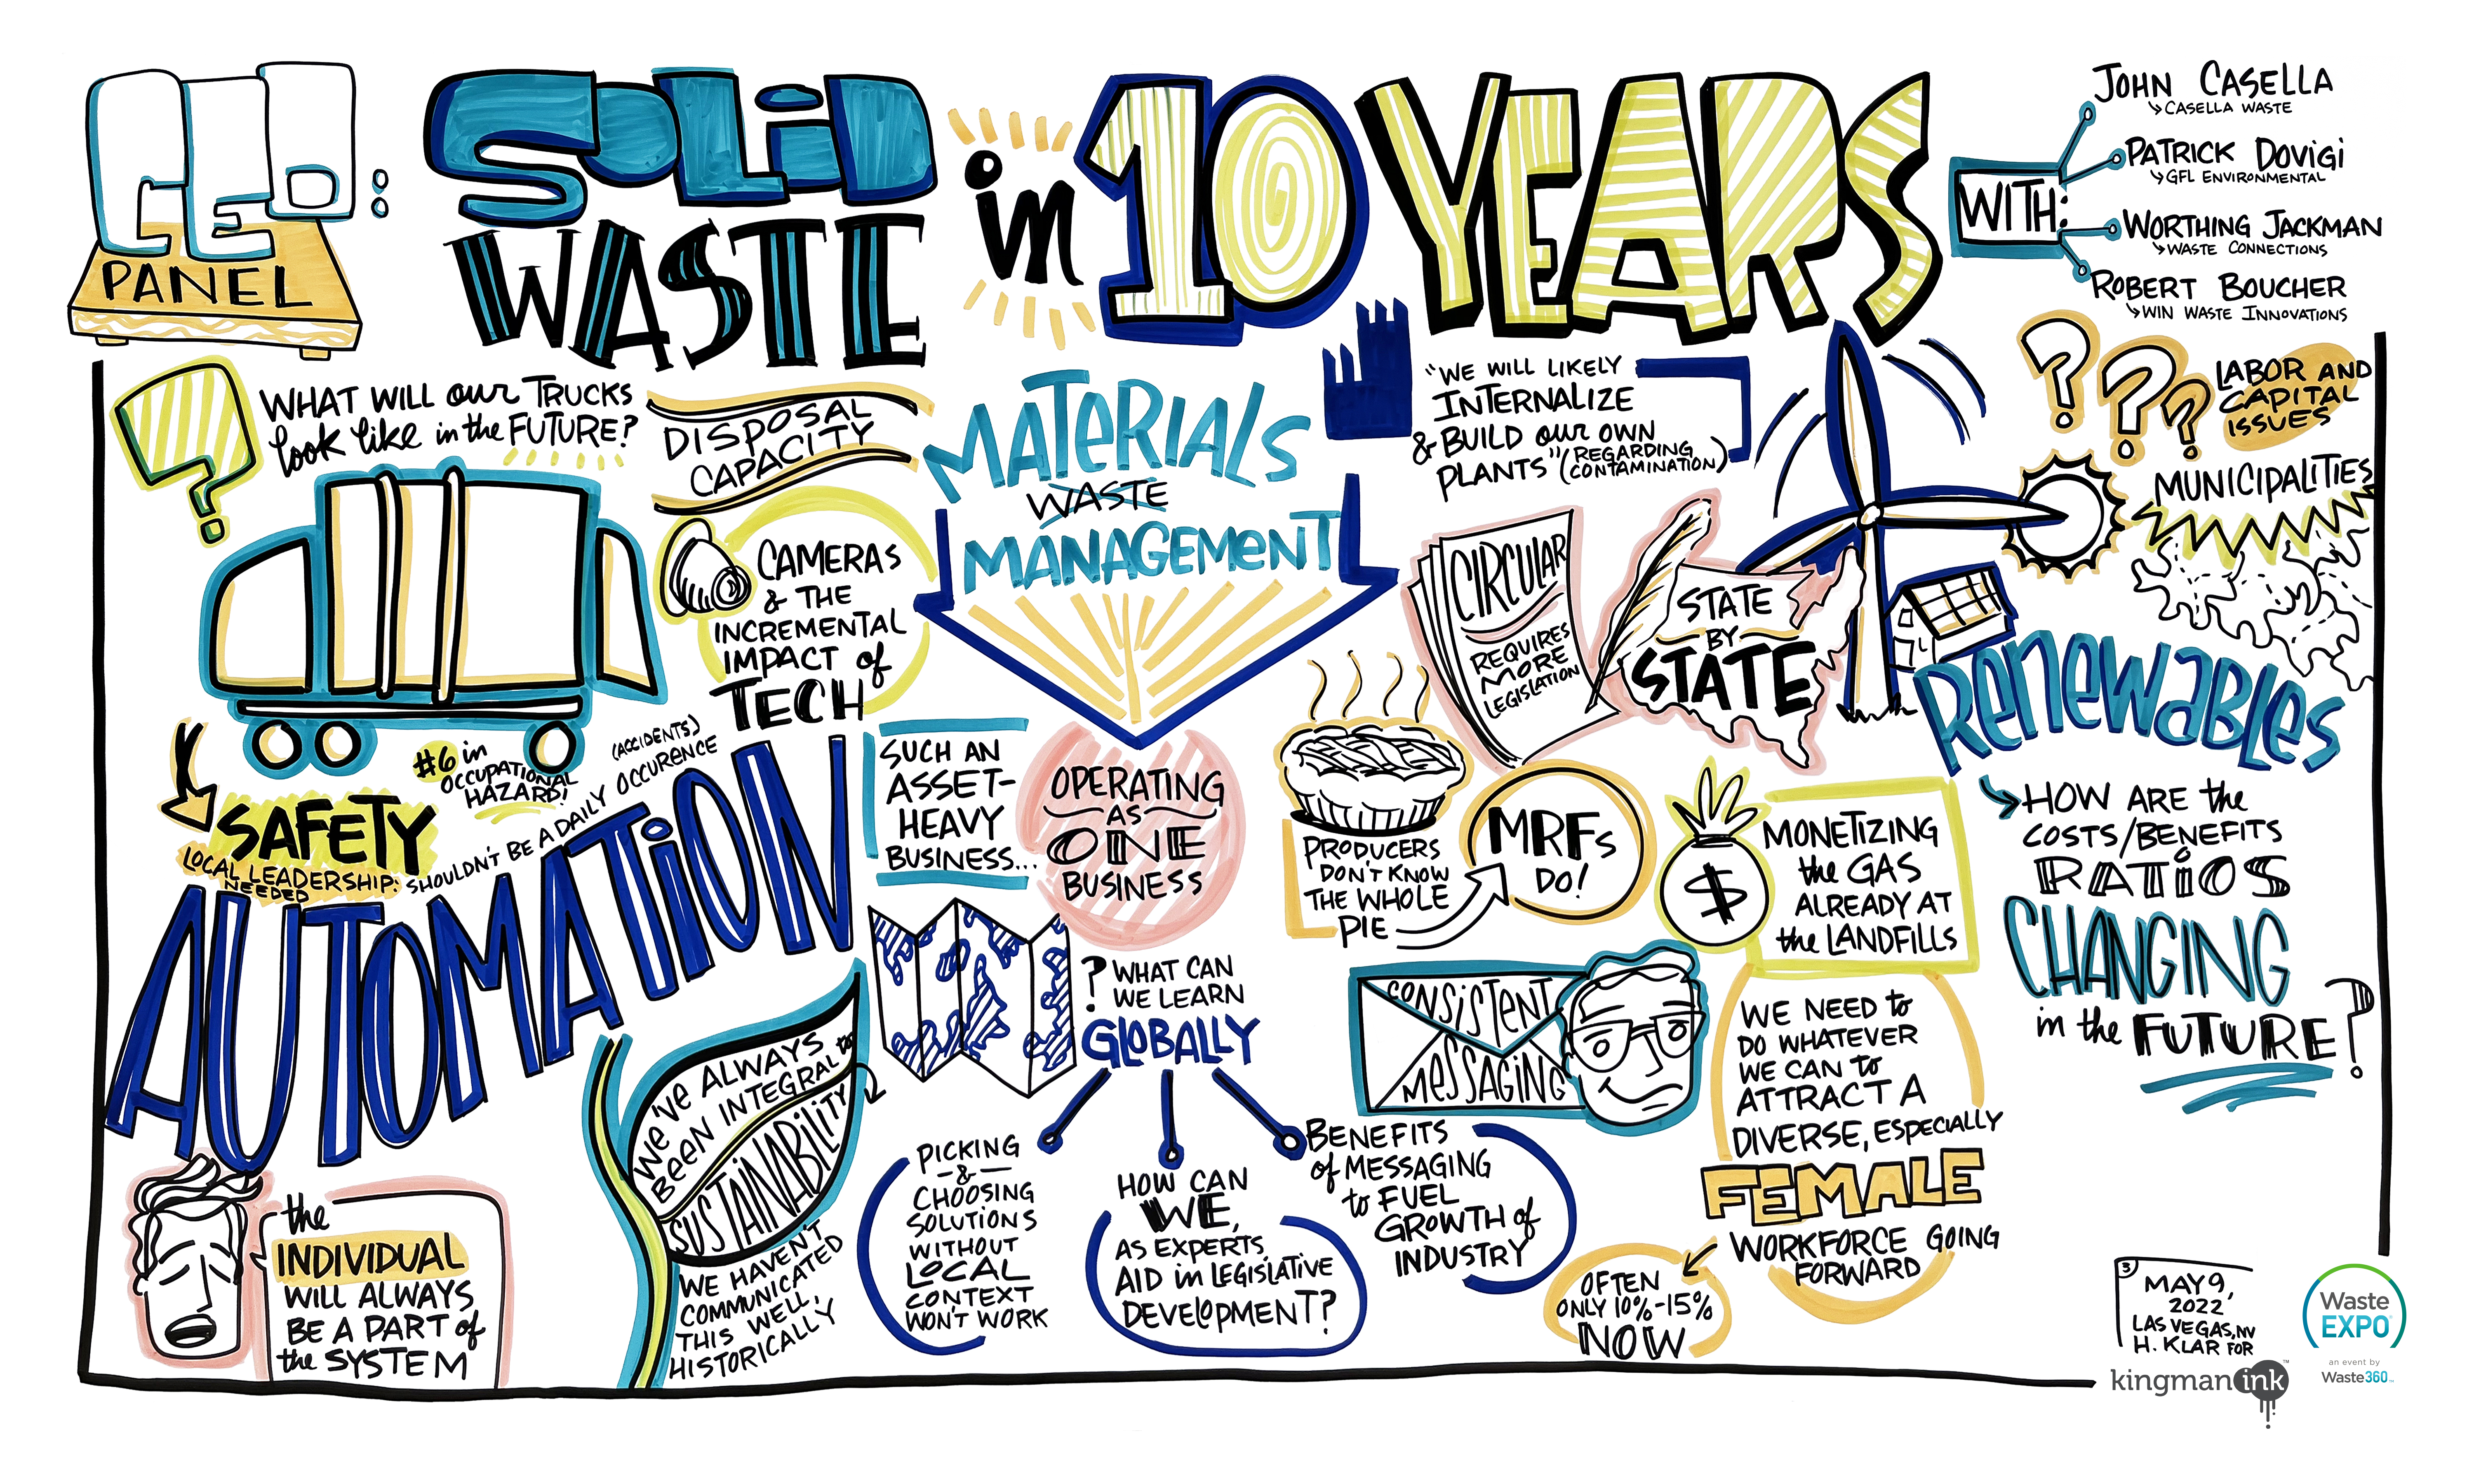 CEO:
PANEL
SOLID
WASTE
in
10 YEARS
WITH:
JOHN CASELLA
CASELLA WASTE
PATRICK DOVIGI
GFL ENVIRONMENTAL
WORTHING JACKMAN
WASTE CONNECTIONS
ROBERT BOUCHER
WIN WASTE INNOVATIONS
?
WHAT WILL our TRUCKS
look like in the FUTURE?
DISPOSAL
CAPACITY
CAMERAS
& THE
INCREMENTAL
IMPACT of
TECH
SAFETY
LOCAL LEADERSHIP:
NEEDED
#6 in
OCCUPATIONAL
HAZARD!
(ACCIDENTS)
SHOULDN'T BE A DAILY OCCURENCE
AUTOMATION
the
INDIVIDUAL
WILL ALWAYS
BE A PART of
the SYSTEM
WE'VE ALWAYS
BEEN INTEGRAL to
SUSTAINABILITY
WE HAVEN'T
COMMUNICATED
THIS WELL,
HISTORICALLY
MATERIALS
WASTE
MANAGEMENT
SUCH AN
ASSET-
HEAVY
BUSINESS...
OPERATING
AS
ONE
BUSINESS
? WHAT CAN
WE LEARN
GLOBALLY
PICKING
-&-
CHOOSING
SOLUTIONS
WITHOUT
LOCAL
CONTEXT
WON'T WORK
HOW CAN
WE,
AS EXPERTS,
AID in LEGISLATIVE
DEVELOPMENT?
BENEFITS
of MESSAGING
to FUEL
GROWTH of
INDUSTRY
"WE WILL LIKELY
INTERNALIZE
& BUILD our OWN
PLANTS" (REGARDING
CONTAMINATION)
CIRCULAR
REQUIRES
MORE
LEGISLATION
STATE
BY
STATE
PRODUCERS
DON'T KNOW
THE WHOLE
PIE
MRFs
DO!
$
MONETIZING
the GAS
ALREADY AT
the LANDFILLS
CONSISTENT
MESSAGING
WE NEED to
DO WHATEVER
WE CAN to
ATTRACT A
DIVERSE, ESPECIALLY
FEMALE
WORKFORCE GOING
FORWARD
OFTEN
ONLY 10%-15%
NOW
? ? ?
LABOR AND
CAPITAL
ISSUES
MUNICIPALITIES
RENEWABLES
HOW ARE the
COSTS/BENEFITS
RATIOS
CHANGING
in the FUTURE?
3
MAY 9,
2022
LAS VEGAS, NV
H. KLAR FOR
kingman ink ™
Waste
EXPO
an event by
Waste360